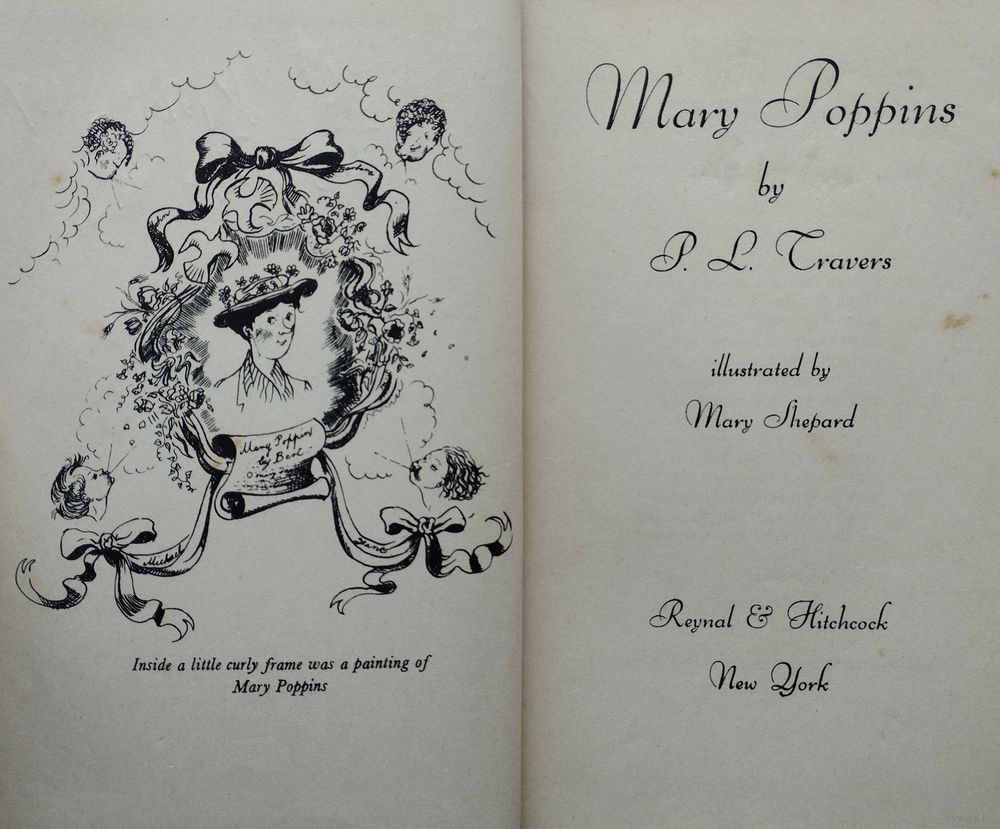 Mary Poppins
by Bert
Michael
Jane
Inside a little curly frame was a painting of
Mary Poppins
Mary Poppins
by
P. L. Travers
illustrated by
Mary Shepard
Reynal & Hitchcock
New York